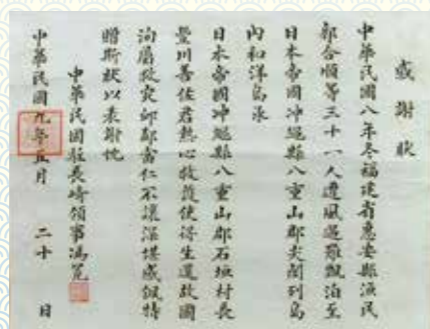 感謝狀
中華民國八年冬福建省惠安縣漁民
郭合順等三十一人遭風遇難飄泊至
日本帝國冲繩縣八重山郡尖閣列島
內和洋島承
日本帝國冲繩縣八重山郡石垣村長
豐川善佐君熱心救護使得生還故國
洵屬救災恤鄰當仁不讓深堪感佩特
贈斯狀以表謝忱
中華民國駐長崎領事馮冕
中華民國九年五月二十日